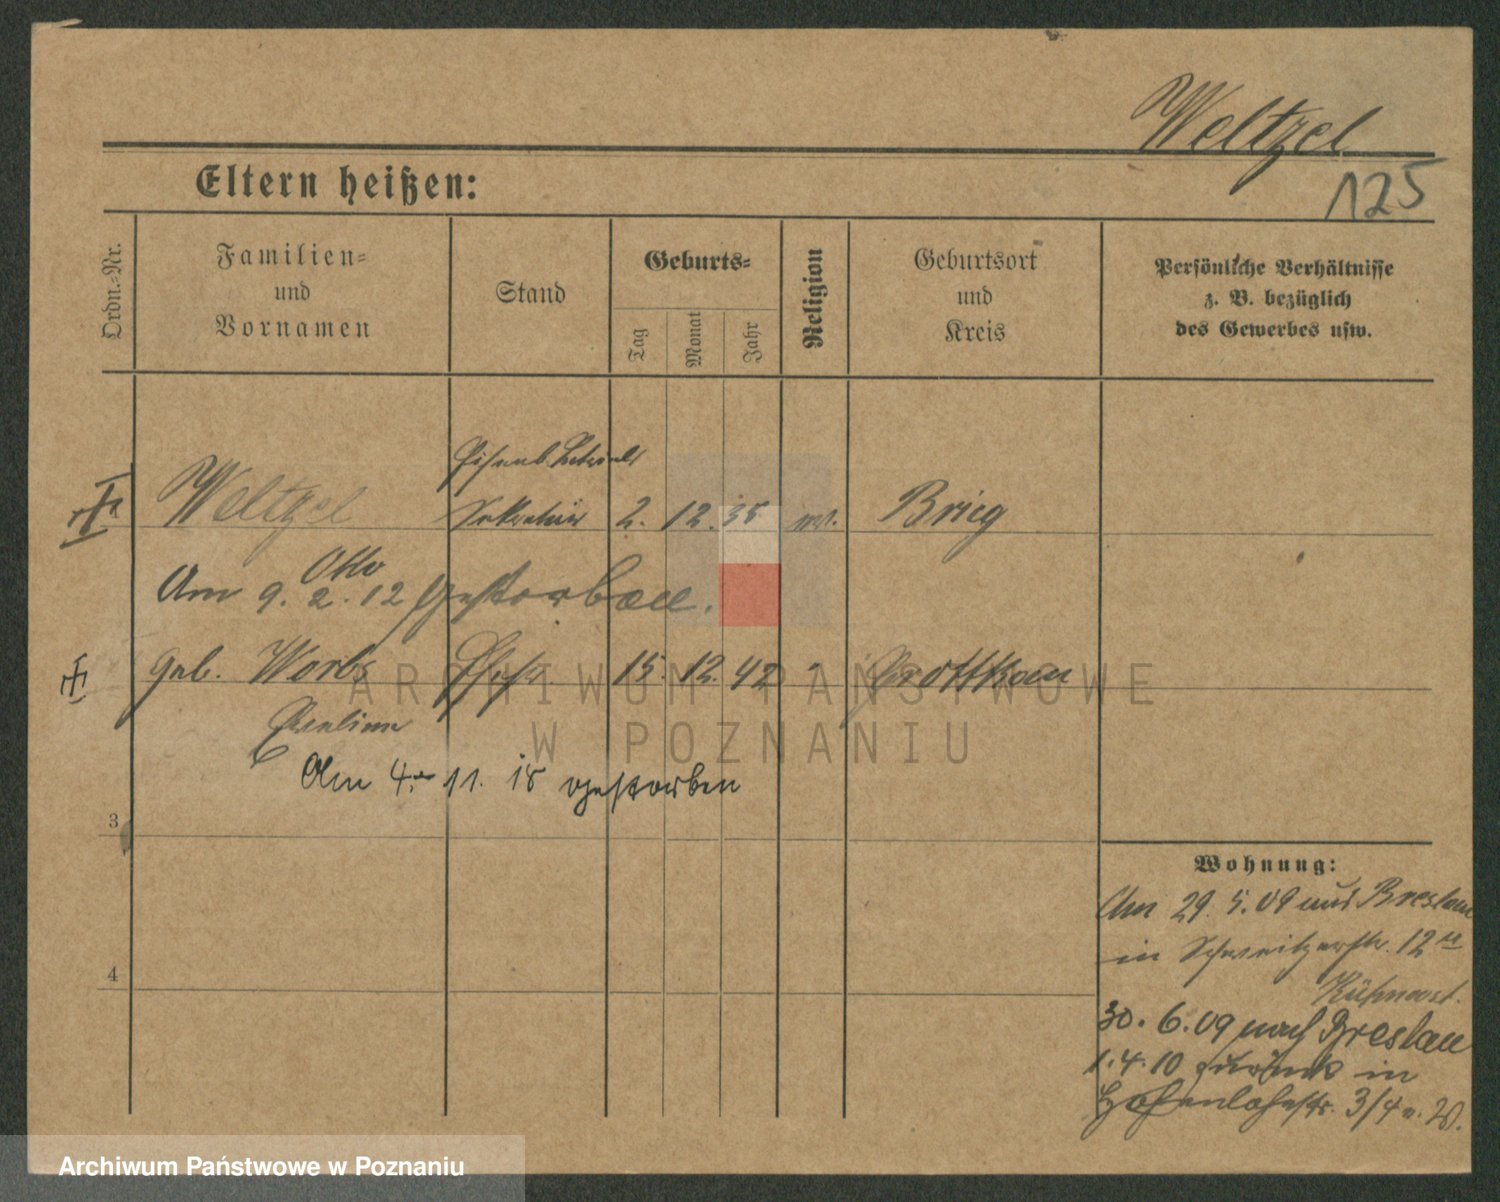 Weltzel
125
Eltern heißen:
Ordn.-Nr.
Familien-
und
Vornamen
Stand
Geburts-
Tag
Monat
Jahr
Religion
Geburtsort
und
Kreis
Persönliche Verhältnisse
z. B. bezüglich
des Gewerbes usw.
Eisenb.
Weltzel Sekretär 2. 12. 35 Brieg
Otto
Am 9. 2. 12 gestorben.
geb. Worbs Ehefr. 15. 12. 42 Grottkau
ARCHIWUM PAŃSTWOWE
W POZNANIU
Am 4. 11. 18 gestorben
3
4
Wohnung:
Am 29. 5. 09 aus Breslau
in 12
30. 6. 09 nach Breslau
1. 4. 10 zurück in
Hohenlohestr. 3/4
Archiwum Państwowe w Poznaniu